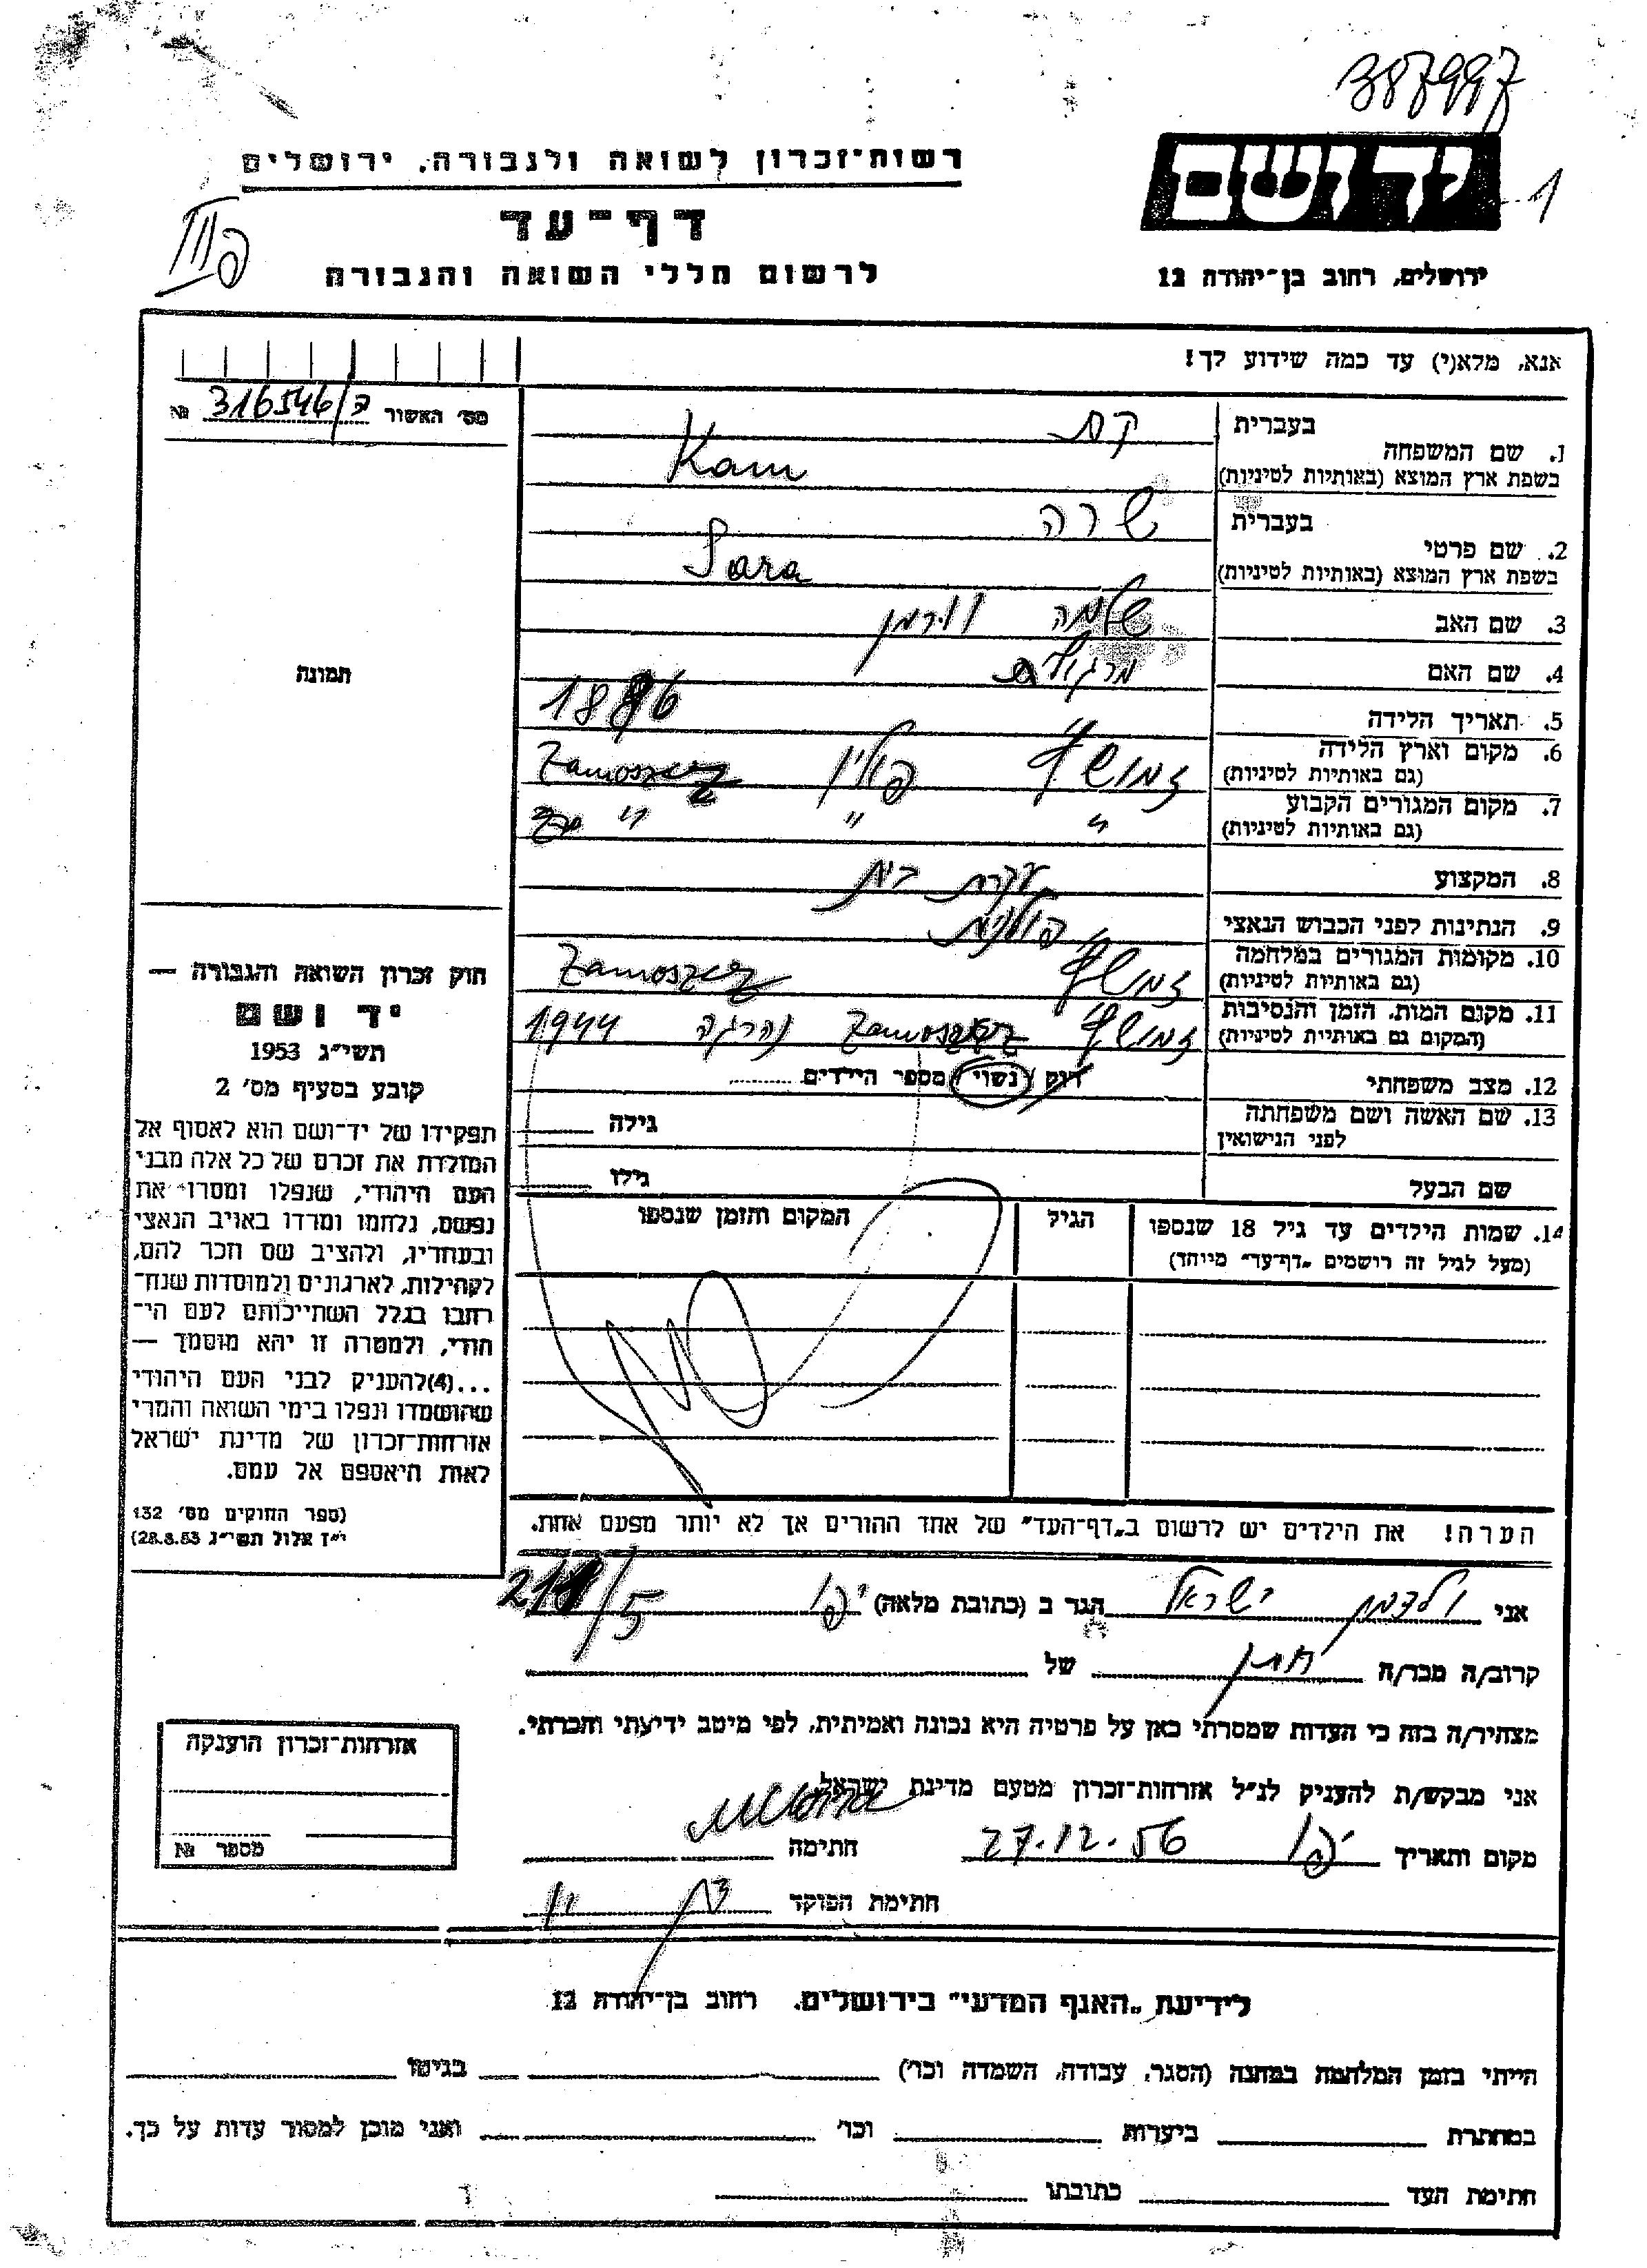 387997
רשות־זכרון לשואה ולגבורה, ירושלים
יד ושם
1
דף־עד
לרשום חללי השואה והגבורה
ירושלים, רחוב בן־יהודה 12
אנא, מלא(י) עד כמה שידוע לך!
מס׳ האשור 316546/ № 
1. שם המשפחה בעברית קם
בשפת ארץ המוצא (באותיות לטיניות) Kam
2. שם פרטי בעברית שרה
בשפת ארץ המוצא (באותיות לטיניות) Sara
3. שם האב שלמה
4. שם האם
5. תאריך הלידה 1886
6. מקום וארץ הלידה זמושץ׳ פולין Zamoszcz
(גם באותיות לטיניות)
7. מקום המגורים הקבוע " " "
(גם באותיות לטיניות)
8. המקצוע עקרת בית
9. הנתינות לפני הכבוש הנאצי פולנית
10. מקומות המגורים במלחמה זמושץ׳ Zamoszcz
(גם באותיות לטיניות)
11. מקום המות, הזמן והנסיבות זמושץ׳ Zamoszcz נהרגה 1944
(המקום גם באותיות לטיניות)
12. מצב משפחתי רוק / נשוי / מספר הילדים
13. שם האשה ושם משפחתה גילה
לפני הנישואין
שם הבעל גילו
14. שמות הילדים עד גיל 18 שנספו הגיל המקום והזמן שנספו
(מעל לגיל זה רושמים „דף־עד" מיוחד)
הערה! את הילדים יש לרשום ב„דף־העד" של אחד ההורים אך לא יותר מפעם אחת.
תמונה
חוק זכרון השואה והגבורה —
יד ושם
תשי״ג 1953
קובע בסעיף מס׳ 2
תפקידו של יד־ושם הוא לאסוף אל
המולדת את זכרם של כל אלה מבני
העם היהודי, שנפלו ומסרו את
נפשם, נלחמו ומרדו באויב הנאצי
ובעוזריו, ולהציב שם וזכר להם,
לקהילות, לארגונים ולמוסדות שנח־
רבו בגלל השתייכותם לעם הי־
הודי, ולמטרה זו יהא מוסמך —
...(4)להעניק לבני העם היהודי
שהושמדו ונפלו בימי השואה והמרי
אזרחות־זכרון של מדינת ישראל
לאות היאספם אל עמם.
(ספר החוקים מס׳ 132
י״ז אלול תשי״ג 28.8.53)
אני ולדמן ישראל הגר ב (כתובת מלאה) יפו
קרוב/ה מכר/ה חתן של
מצהיר/ה בזה כי העדות שמסרתי כאן על פרטיה היא נכונה ואמיתית, לפי מיטב ידיעתי והכרתי.
אני מבקש/ת להעניק לנ״ל אזרחות־זכרון מטעם מדינת ישראל
מקום ותאריך יפו 27.12.56 חתימה
חתימת הפוקד
אזרחות־זכרון הוענקה
מספר №
לידיעת „האגף המדעי" בירושלים, רחוב בן־יהודה 12
הייתי בזמן המלחמה במחנה (הסגר, עבודה, השמדה וכו׳) בגיטו
במחתרת ביערות וכו׳ ואני מוכן למסור עדות על כך.
חתימת העד כתובתו